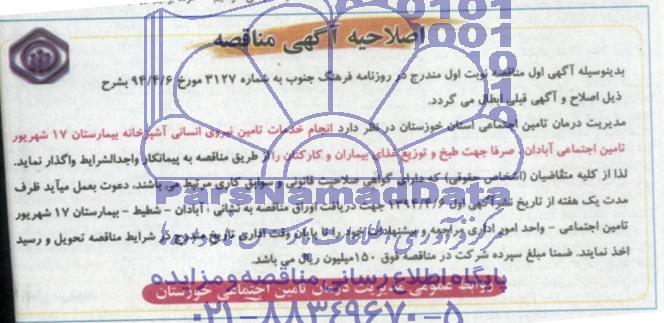 اصلاحیه آگهی مناقصه
بدینوسیله آگهی اول مناقصه نوبت اول مندرج در روزنامه فرهنگ جنوب به شماره ۳۱۲۷ مورخ ۹۴/۴/۶ بشرح
ذیل اصلاح و آگهی قبلی ابطال می گردد.
مدیریت درمان تامین اجتماعی استان خوزستان در نظر دارد انجام خدمات تامین نیروی انسانی آشپزخانه بیمارستان ۱۷ شهریور
تامین اجتماعی آبادان صرفا جهت طبخ و توزیع غذای بیماران و کارکنان را از طریق مناقصه به پیمانکار واجدالشرایط واگذار نماید.
لذا از کلیه متقاضیان (اشخاص حقوقی) که دارای گواهی صلاحیت قانونی و سوابق کاری مرتبط می باشند، دعوت بعمل میآید ظرف
مدت یک هفته از تاریخ نشر آگهی اول ۱۳۹۴/۴/۶ جهت دریافت اوراق مناقصه به نشانی : آبادان - شطیط - بیمارستان ۱۷ شهریور
تامین اجتماعی - واحد امور اداری مراجعه و پیشنهادات خود را تا پایان وقت اداری تاریخ مندرج در شرایط مناقصه تحویل و رسید
اخذ نمایند. ضمنا مبلغ سپرده شرکت در مناقصه فوق ۱۵۰میلیون ریال می باشد.
روابط عمومی مدیریت درمان تامین اجتماعی خوزستان
ParsNamadData
مرکز فرآوری اطلاعات پارس نماد داده ها
پایگاه اطلاع رسانی مناقصه و مزایده
۰۲۱-۸۸۳۴۹۶۷۰-۵